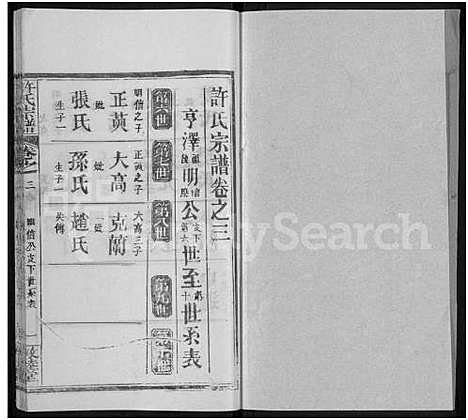 許氏宗譜卷之三
亨澤 明 公 支下 第六 世至 第十 世系表
第六世
第七世
第八世
第九世
明信之子
正黃
娶
張氏
生子一
正黃之子
大高
娶
孫氏
生子
大高三子
克蘭
娶
趙氏
失傳
許氏宗譜
卷之三
明信公支下世系表
MySearch